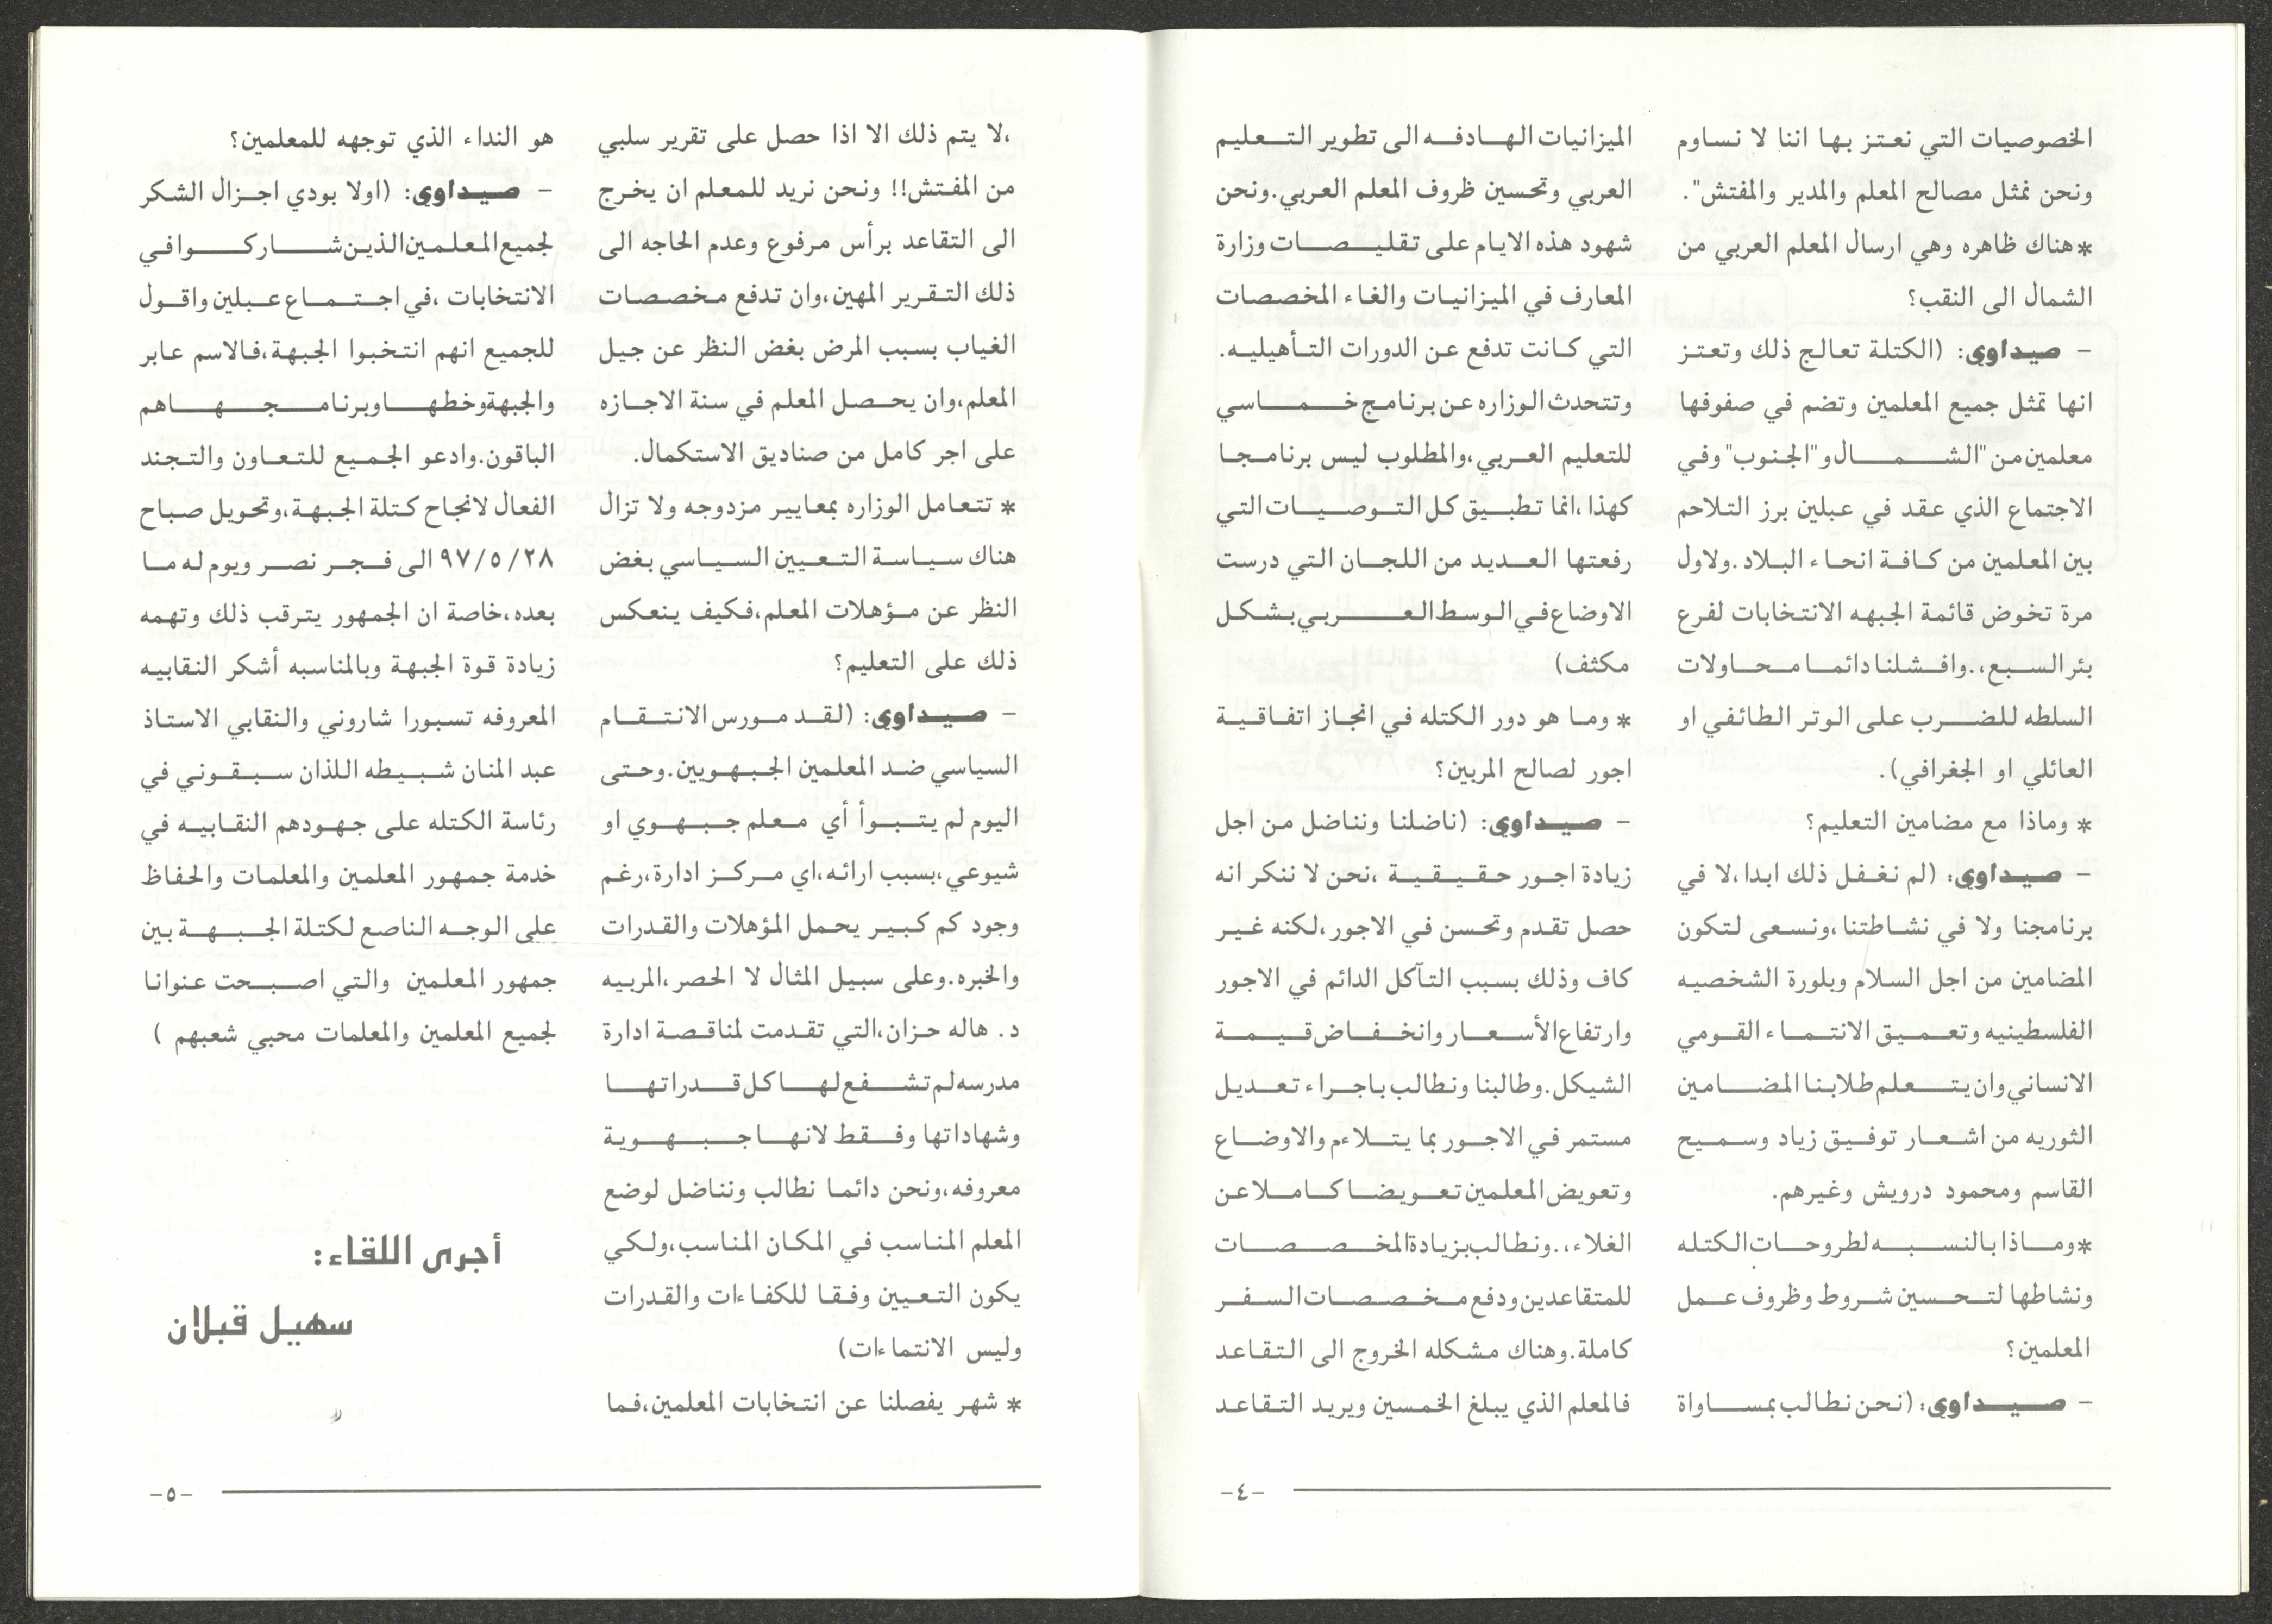 الخصوصيات التي نعتز بها اننا لا نساوم
ونحن نمثل مصالح المعلم والمدير والمفتش".
*هناك ظاهره وهي ارسال المعلم العربي من
الشمال الى النقب؟
- صيداوي: (الكتلة تعالج ذلك وتعتز
انها تمثل جميع المعلمين وتضم في صفوفها
معلمين من "الشمال و"الجنوب" وفي
الاجتماع الذي عقد في عبلين برز التلاحم
بين المعلمين من كافة انحاء البلاد.ولاول
مرة تخوض قائمة الجبهه الانتخابات لفرع
بئر السبع،.وافشلنا دائما محاولات
السلطه للضرب على الوتر الطائفي او
العائلي او الجغرافي).
* وماذا مع مضامين التعليم؟
- صيداوي: (لم نغفل ذلك ابدا،لا في
برنامجنا ولا في نشاطتنا،ونسعى لتكون
المضامين من اجل السلام وبلورة الشخصيه
الفلسطينيه وتعميق الانتماء القومي
الانساني وان يتعلم طلابنا المضامين
الثوريه من اشعار توفيق زياد وسميح
القاسم ومحمود درويش وغيرهم.
*وماذا بالنسبه لطروحات الكتله
ونشاطها لتحسين شروط وظروف عمل
المعلمين؟
- صيداوي: (نحن نطالب بمساواة
الميزانيات الهادفه الى تطوير التعليم
العربي وتحسين ظروف المعلم العربي.ونحن
شهود هذه الايام على تقليصات وزارة
المعارف في الميزانيات والغاء المخصصات
التي كانت تدفع عن الدورات التأهيليه.
وتتحدث الوزاره عن برنامج خماسي
للتعليم العربي،والمطلوب ليس برنامجا
كهذا،انما تطبيق كل التوصيات التي
رفعتها العديد من اللجان التي درست
الاوضاع في الوسط العربي بشكل
مكثف)
* وما هو دور الكتله في انجاز اتفاقية
اجور لصالح المربين؟
- صيداوي: (ناضلنا ونناضل من اجل
زيادة اجور حقيقية ،نحن لا ننكر انه
حصل تقدم وتحسن في الاجور،لكنه غير
كاف وذلك بسبب التآكل الدائم في الاجور
وارتفاع الأسعار وانخفاض قيمة
الشيكل.وطالبنا ونطالب باجراء تعديل
مستمر في الاجور بما يتلاءم والاوضاع
وتعويض المعلمين تعويضا كاملا عن
الغلاء،.ونطالب بزيادة المخصصات
للمتقاعدين ودفع مخصصات السفر
كاملة.وهناك مشكله الخروج الى التقاعد
فالمعلم الذي يبلغ الخمسين ويريد التقاعد
-٤-
،لا يتم ذلك الا اذا حصل على تقرير سلبي
من المفتش!! ونحن نريد للمعلم ان يخرج
الى التقاعد برأس مرفوع وعدم الحاجه الى
ذلك التقرير المهين،وان تدفع مخصصات
الغياب بسبب المرض بغض النظر عن جيل
المعلم،وان يحصل المعلم في سنة الاجازه
على اجر كامل من صناديق الاستكمال.
* تتعامل الوزاره بمعايير مزدوجه ولا تزال
هناك سياسة التعيين السياسي بغض
النظر عن مؤهلات المعلم،فكيف ينعكس
ذلك على التعليم؟
- صيداوي: (لقد مورس الانتقام
السياسي ضد المعلمين الجبهويين.وحتى
اليوم لم يتبوأ أي معلم جبهوي او
شيوعي،بسبب ارائه،اي مركز ادارة،رغم
وجود كم كبير يحمل المؤهلات والقدرات
والخبره.وعلى سبيل المثال لا الحصر،المربيه
د. هاله حزان،التي تقدمت لمناقصة ادارة
مدرسه لم تشفع لها كل قدراتها
وشهاداتها وفقط لانها جبهوية
معروفه،ونحن دائما نطالب ونناضل لوضع
المعلم المناسب في المكان المناسب،ولكي
يكون التعيين وفقا للكفاءات والقدرات
وليس الانتماءات)
* شهر يفصلنا عن انتخابات المعلمين،فما
هو النداء الذي توجهه للمعلمين؟
- صيداوي: (اولا بودي اجزال الشكر
لجميع المعلمين الذين شاركوا في
الانتخابات ،في اجتماع عبلين واقول
للجميع انهم انتخبوا الجبهة،فالاسم عابر
والجبهة وخطها وبرنامجها هم
الباقون.وادعو الجميع للتعاون والتجند
الفعال لانجاح كتلة الجبهة،وتحويل صباح
٩٧/٥/٢٨ الى فجر نصر ويوم له ما
بعده،خاصة ان الجمهور يترقب ذلك وتهمه
زيادة قوة الجبهة وبالمناسبه أشكر النقابيه
المعروفه تسبورا شاروني والنقابي الاستاذ
عبد المنان شبيطه اللذان سبقوني في
رئاسة الكتله على جهودهم النقابيه في
خدمة جمهور المعلمين والمعلمات والحفاظ
على الوجه الناصع لكتلة الجبهة بين
جمهور المعلمين والتي اصبحت عنوانا
لجميع المعلمين والمعلمات محبي شعبهم )
أجرى اللقاء:
سهيل قبلان
-٥-